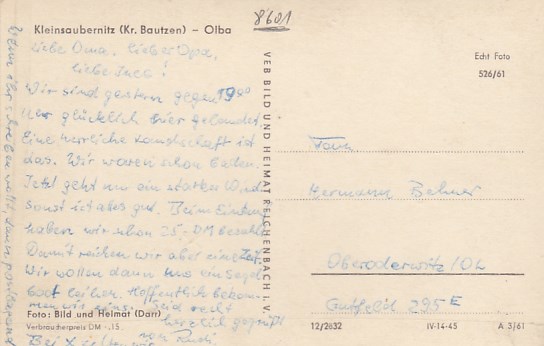 8601
Kleinsaubernitz (Kr. Bautzen) – Olba
liebe Oma, lieber Opa,
liebe Inel!
Wir sind gestern gegen 19⁰⁰
Uhr glücklich hier gelandet.
Eine herrliche Landschaft ist
das. Wir waren schon baden.
Jetzt geht nur ein starker Wind
sonst ist alles gut. Beim
haben wir schon 25,-DM bezahlt
Damit reichen wir aber eine Zeit.
Wir wollen dann uns ein Segel-
boot leihen. Hoffentlich bekom-
men wir eins. Seid recht
herzlich gegrüßt
von
Foto: Bild und Heimat (Darr)
Verbraucherpreis DM -.15
Wenn ihr schreiben wollt, dann postlagernd
VEB BILD UND HEIMAT REICHENBACH i. V.
Echt Foto
526/61
Frau
Hermann
Oberoderwitz/OL
Gutfeld 295 E
12/2832
IV-14-45
A 3/61